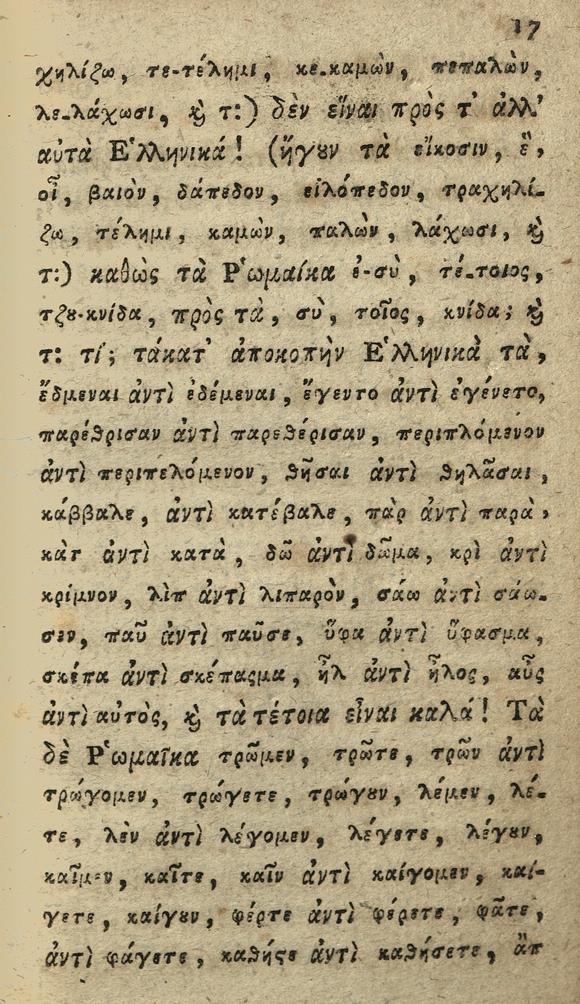 17
χηλίζω, τε-τέλημι, κε-καμὼν, πεπαλὼν,
λε-λάχωσι, ϗ τ:) δὲν εἶναι πρὸς τ' ἀλλ'
αὐτὰ Ἑλληνικά! (ἤγουν τὰ εἴκοσιν, ἒ,
οἷ, βαιὸν, δάπεδον, εἱλόπεδον, τραχηλί-
ζω, τέλημι, καμὼν, παλὼν, λάχωσι, ϗ
τ:) καθὼς τὰ Ῥωμαίκα ἐ-σὺ, τέ-τοιος,
τζου-κνίδα, πρὸς τὰ, σὺ, τοῖος, κνίδα; ϗ
τ: τί; τάκατ' ἀποκοπὴν Ἑλληνικὰ τὰ,
ἔδμεναι ἀντὶ ἐδέμεναι, ἔγεντο ἀντὶ ἐγένετο,
παρέθρισαν ἀντὶ παρεθέρισαν, περιπλόμενον
ἀντὶ περιπελόμενον, θῆσαι ἀντὶ θηλᾶσαι,
κάββαλε, ἀντὶ κατέβαλε, πὰρ ἀντὶ παρὰ,
κὰτ ἀντὶ κατὰ, δῶ ἀντὶ δῶμα, κρὶ ἀντὶ
κρίμνον, λὶπ ἀντὶ λιπαρὸν, σάω ἀντὶ σάω-
σεν, παῦ ἀντὶ παῦσε, ὕφα ἀντὶ ὕφασμα,
σκέπα ἀντὶ σκέπασμα, ἧλ ἀντὶ ἧλος, αὖς
ἀντὶ αὐτὸς, ϗ τὰ τέτοια εἶναι καλά! Τὰ
δὲ Ῥωμαῖκα τρῶμεν, τρῶτε, τρῶν ἀντὶ
τρώγομεν, τρώγετε, τρώγουν, λέμεν, λέ-
τε, λὲν ἀντὶ λέγομεν, λέγετε, λέγουν,
καῖμεν, καῖτε, καῖν ἀντὶ καίγομεν, καί-
γετε, καίγουν, φέρτε ἀντὶ φέρετε, φᾶτε,
ἀντὶ φάγετε, καθῆςε ἀντὶ καθήσετε, ἂπ